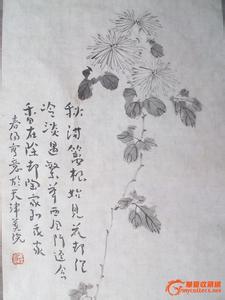 秋满篱根始见花却从
冷淡遇繁华西风门径含
香在除却陶家到我家
於天津美院
华夏收藏网